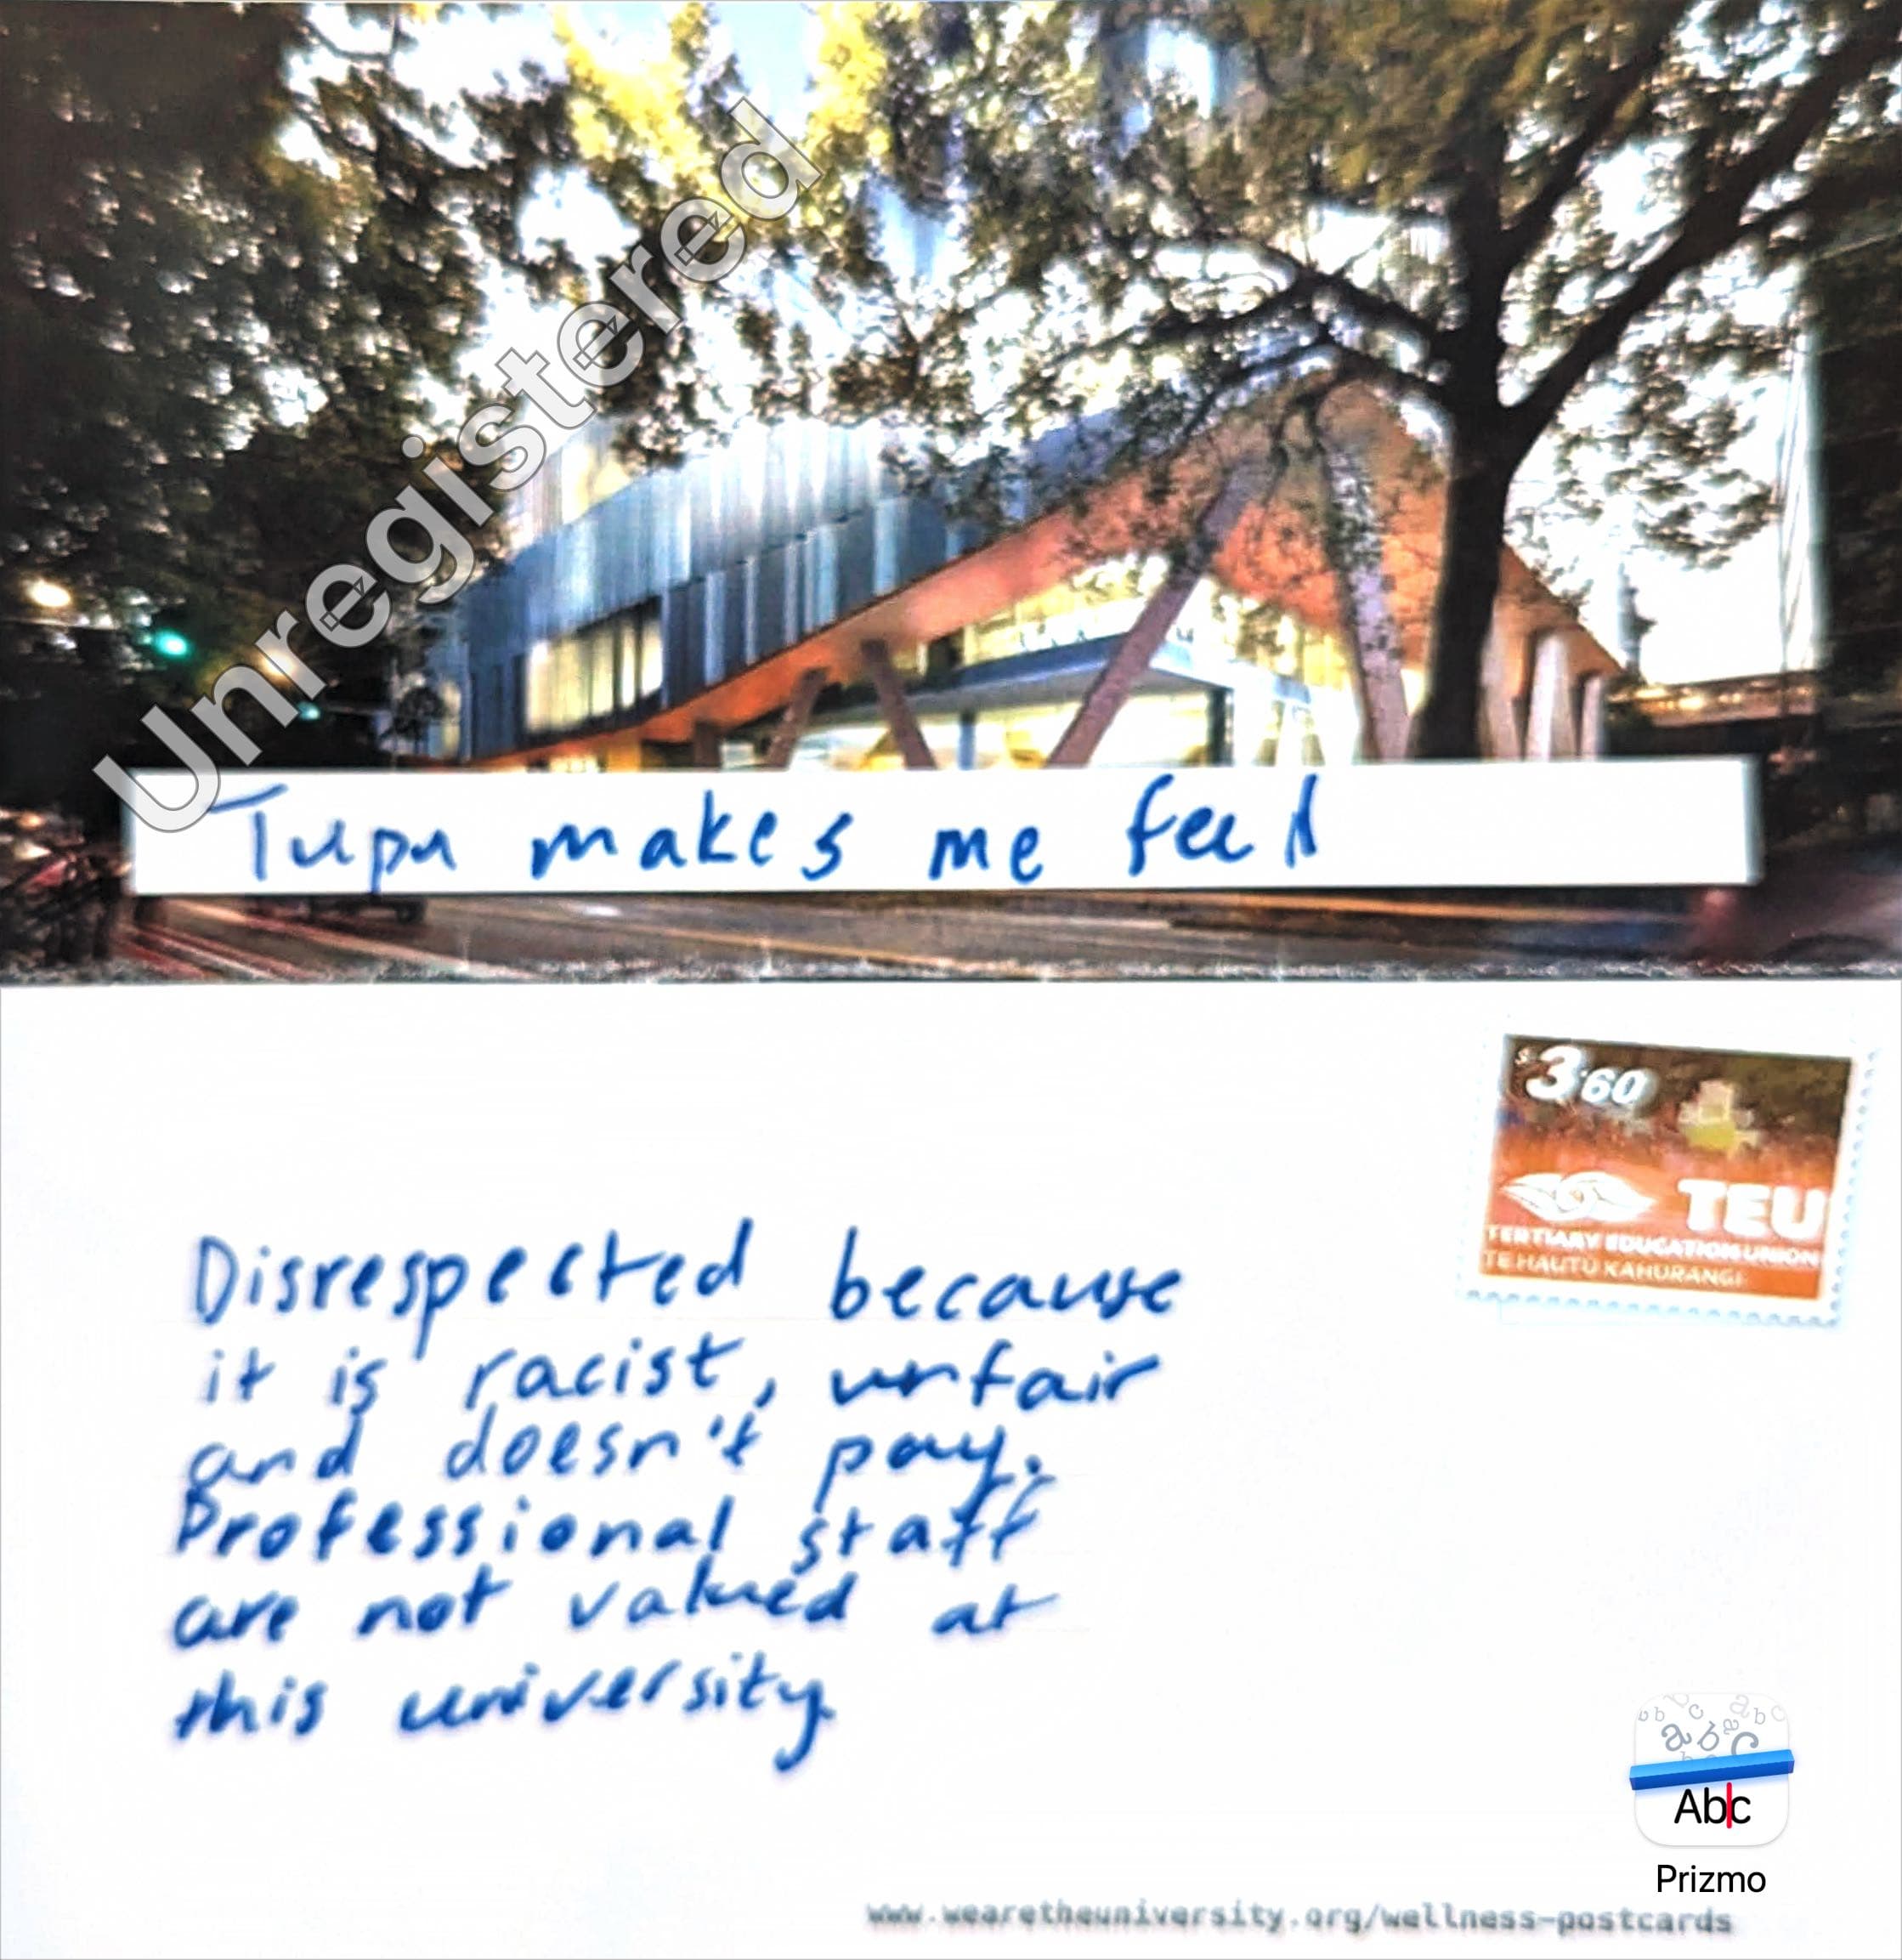 Unregistered
Tupu makes me feel
$3.60
TEU
TERTIARY EDUCATION UNION
TE HAUTŪ KAHURANGI
Disrespected because
it is racist, unfair
and doesn't pay.
Professional staff
are not valued at
this university.
a b c
Abc
Prizmo
www.wearetheuniversity.org/wellness-postcards